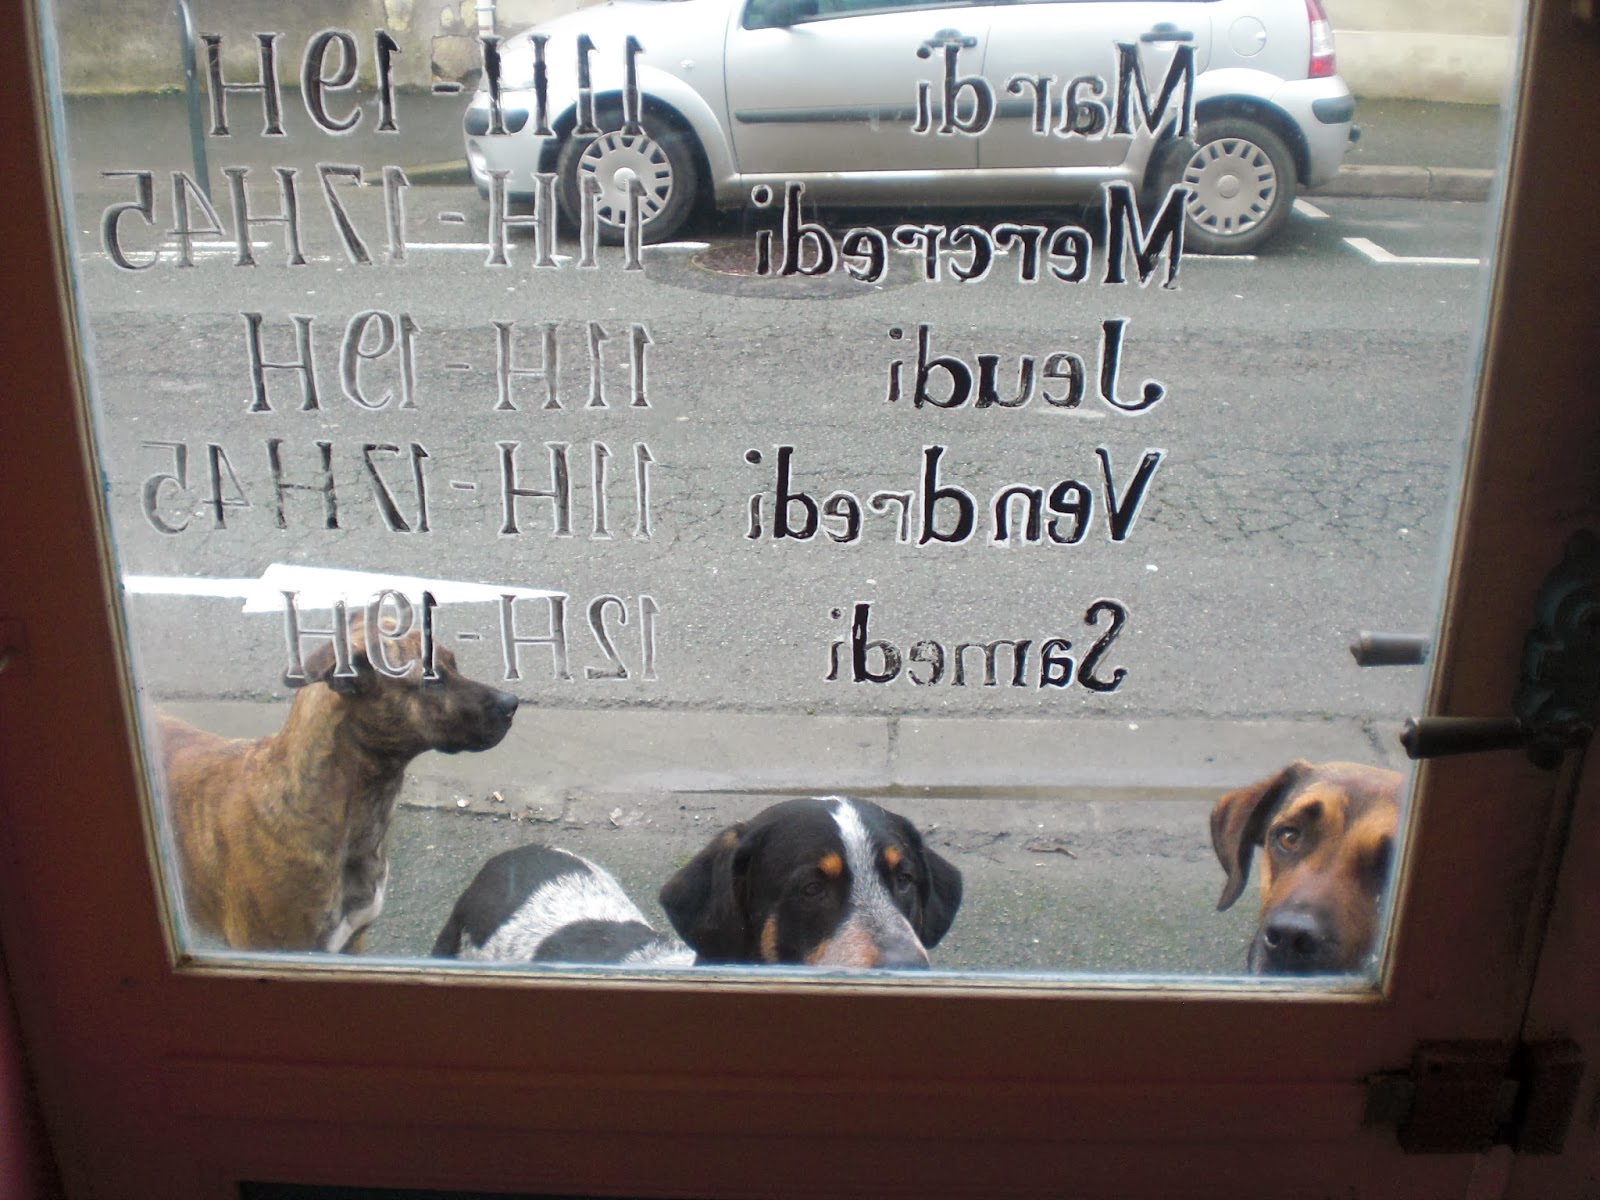 Mardi 11H-19H
Mercredi 11H-17H45
Jeudi 11H-19H
Vendredi 11H-17H45
Samedi 12H-19H